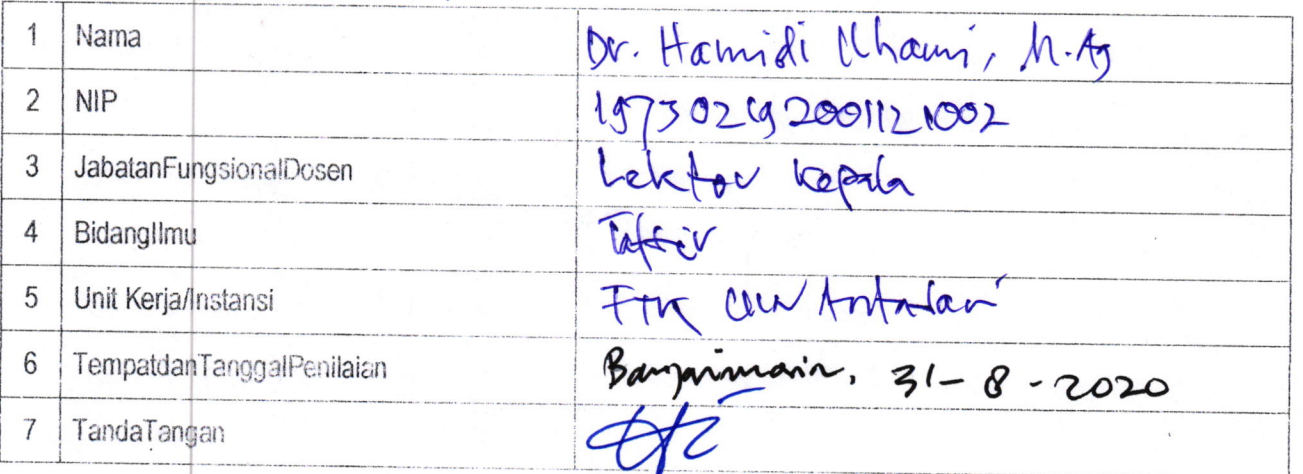 1 Nama Dr. Hamidi Ilhami, M.Ag
2 NIP 197302192001121002
3 JabatanFungsionalDosen Lektor Kepala
4 BidangIlmu Tafsir
5 Unit Kerja/Instansi FTK UIN Antasari
6 TempatdanTanggalPenilaian Banjarmasin, 31-8-2020
7 TandaTangan